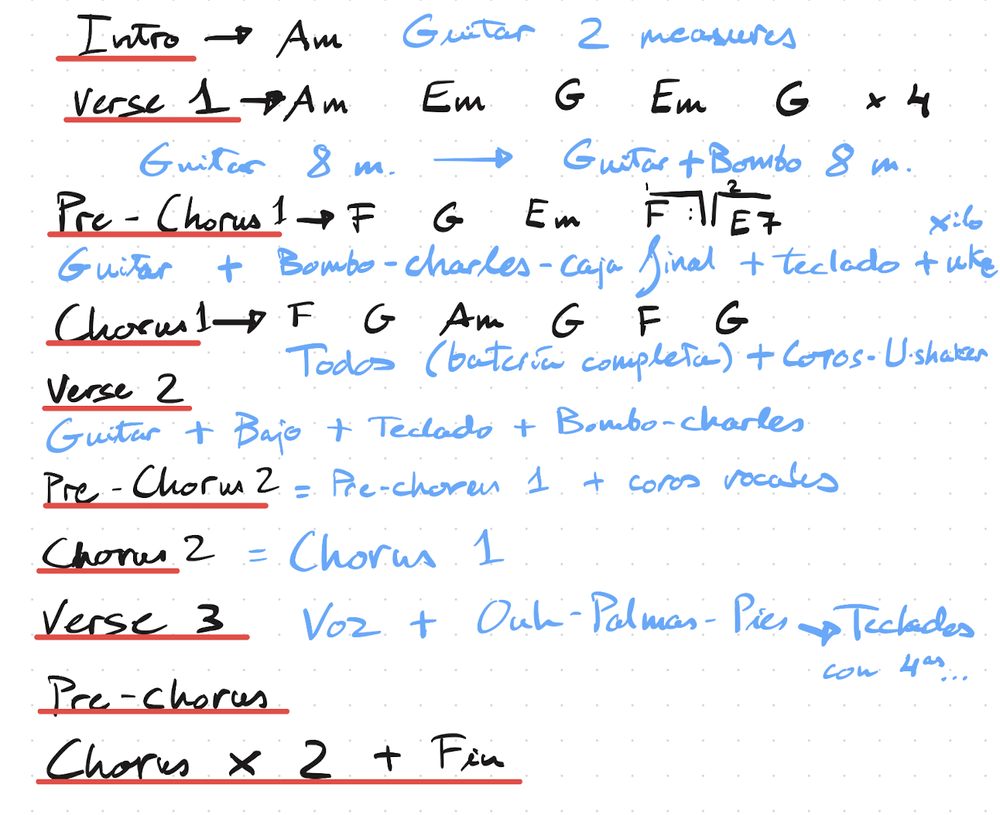 Intro → Am Guitar 2 measures
Verse 1 → Am Em G Em G x 4
Guitar 8 m. → Guitar + Bombo 8 m.
Pre-Chorus 1 → F G Em 1 F :|| 2 E7
xilo
Guitar + Bombo-charles-caja final + teclado + uke
Chorus 1 → F G Am G F G
Todos (batería completa) + Coros-U-shaker
Verse 2
Guitar + Bajo + Teclado + Bombo-charles
Pre-Chorus 2 = Pre-chorus 1 + coros vocales
Chorus 2 = Chorus 1
Verse 3 Voz + Ouh-Palmas-Pies → Teclados
con 4as...
Pre-chorus
Chorus x 2 + Fin